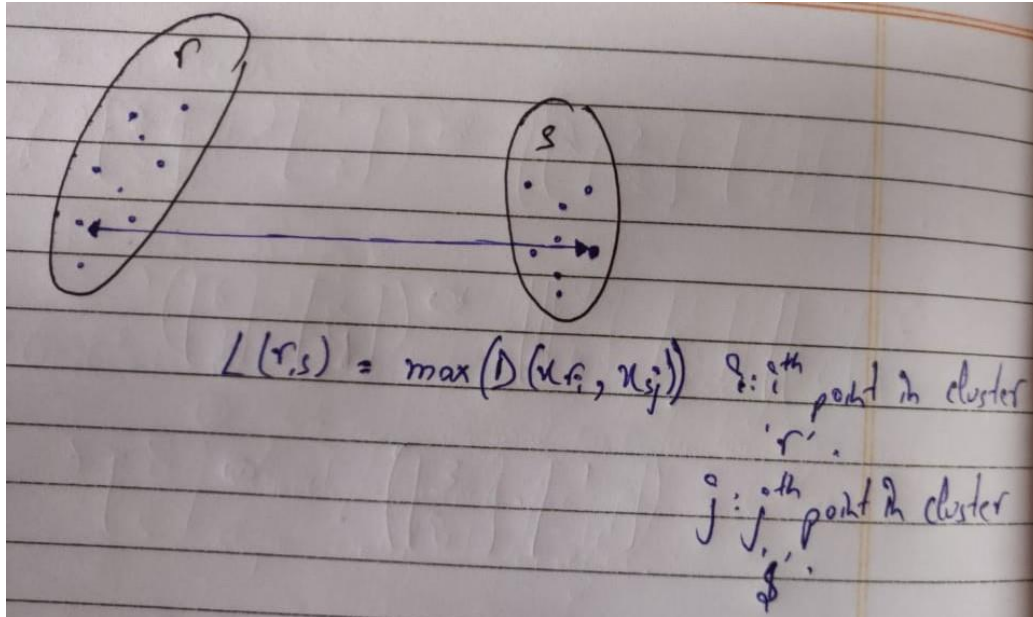 r
s
L(r,s) = max(D(x_{ri}, x_{sj})) i: i^{th} point in cluster
'r'.
j: j^{th} point in cluster
's'.